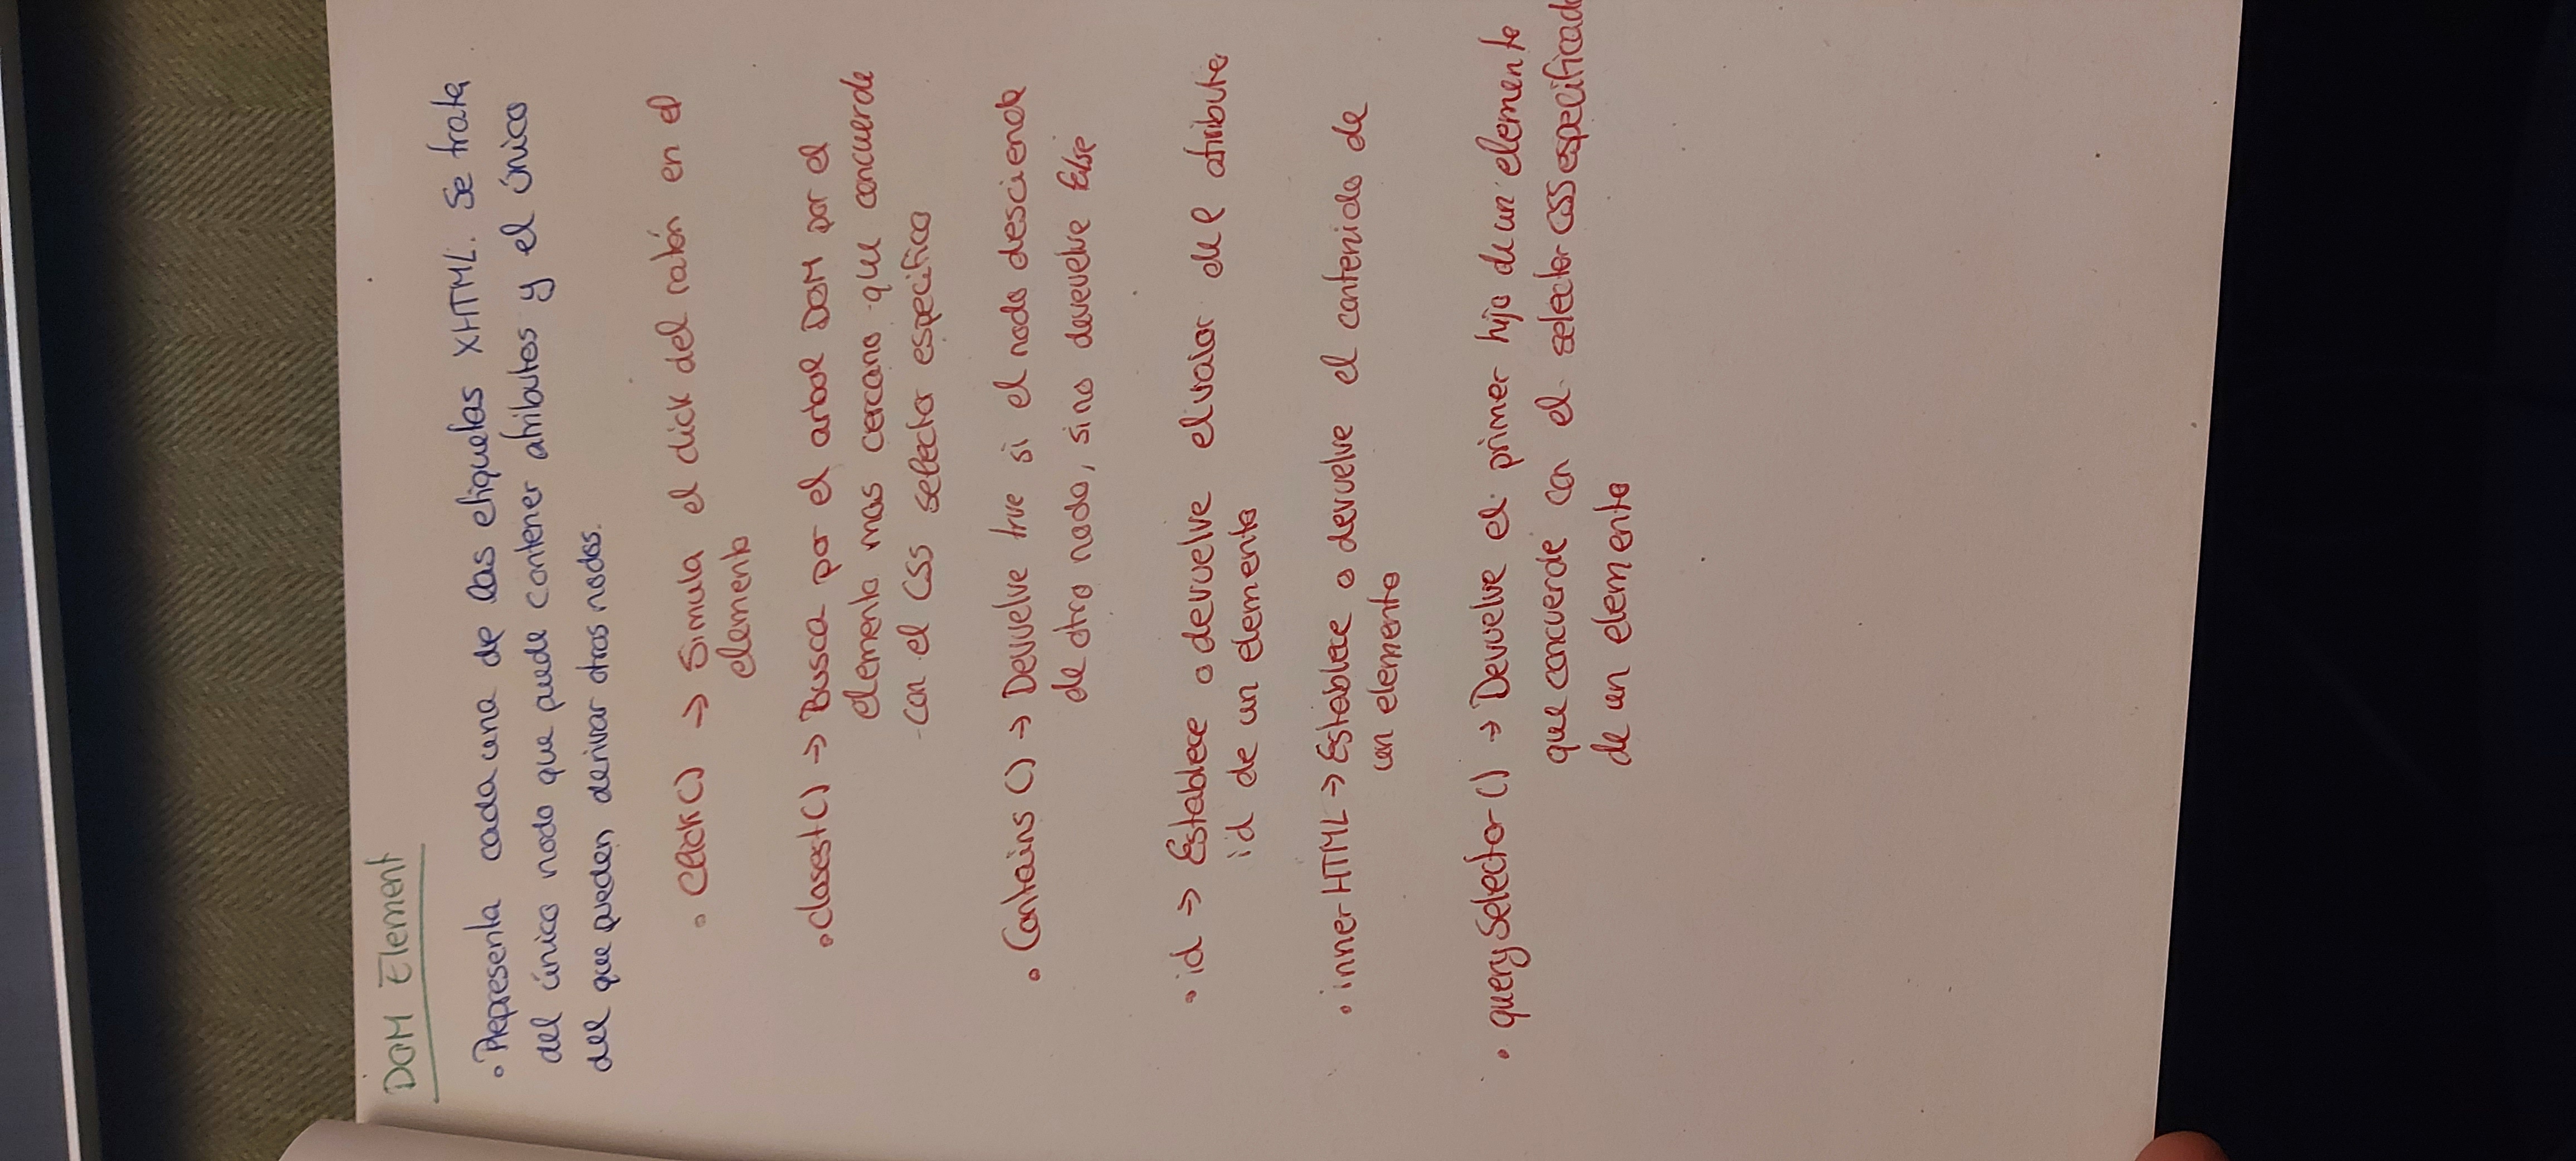 DOM Element
• Representa cada una de las etiquetas XHTML. Se trata
del único nodo que puede contener atributos y el único
del que pueden derivar otros nodos.
• Click() → Simula el click del ratón en el
elemento
• closest() → Busca por el arbol DOM por el
elemento mas cercano que concuerde
con el CSS selector especifico
• Contains () → Devuelve true si el nodo desciende
de otro nodo, sino devevelve false
• id → Establece o devuelve el valor del atributo
id de un elemento
• innerHTML → Establece o devuelve el contenido de
un elemento
• querySelector() → Devuelve el primer hijo de un elemento
que concuerde con el selector CSS especificado
de un elemento